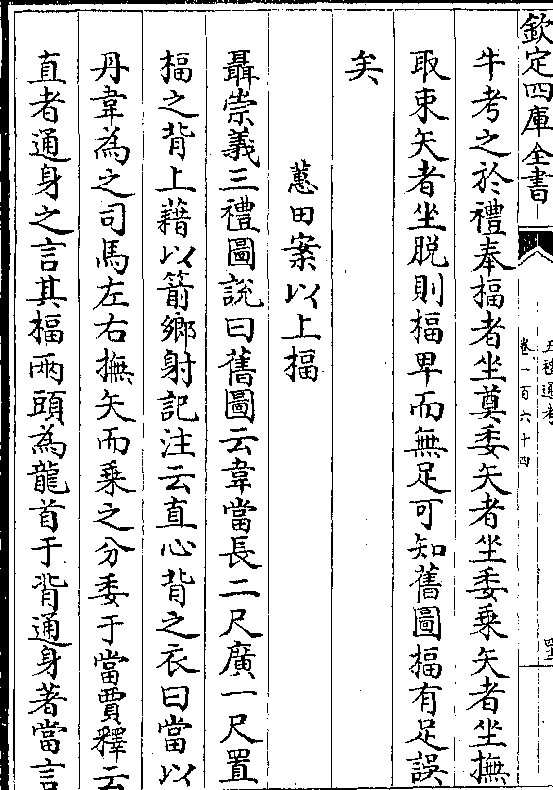 欽定四庫全書
五禮通考
卷一百六十四
牛考之於禮奉楅者坐奠委矢者坐委乗矢者坐撫
取束矢者坐脱則楅卑而無足可知舊圖楅有足誤
矣
蕙田案以上楅
聶崇義三禮圖說曰舊圖云韋當長二尺廣一尺置
楅之背上藉以箭鄉射記注云直心背之衣曰當以
丹韋為之司馬左右撫矢而乗之分委于當賈釋云
直者通身之言其楅兩頭為龍首于背通身著當言